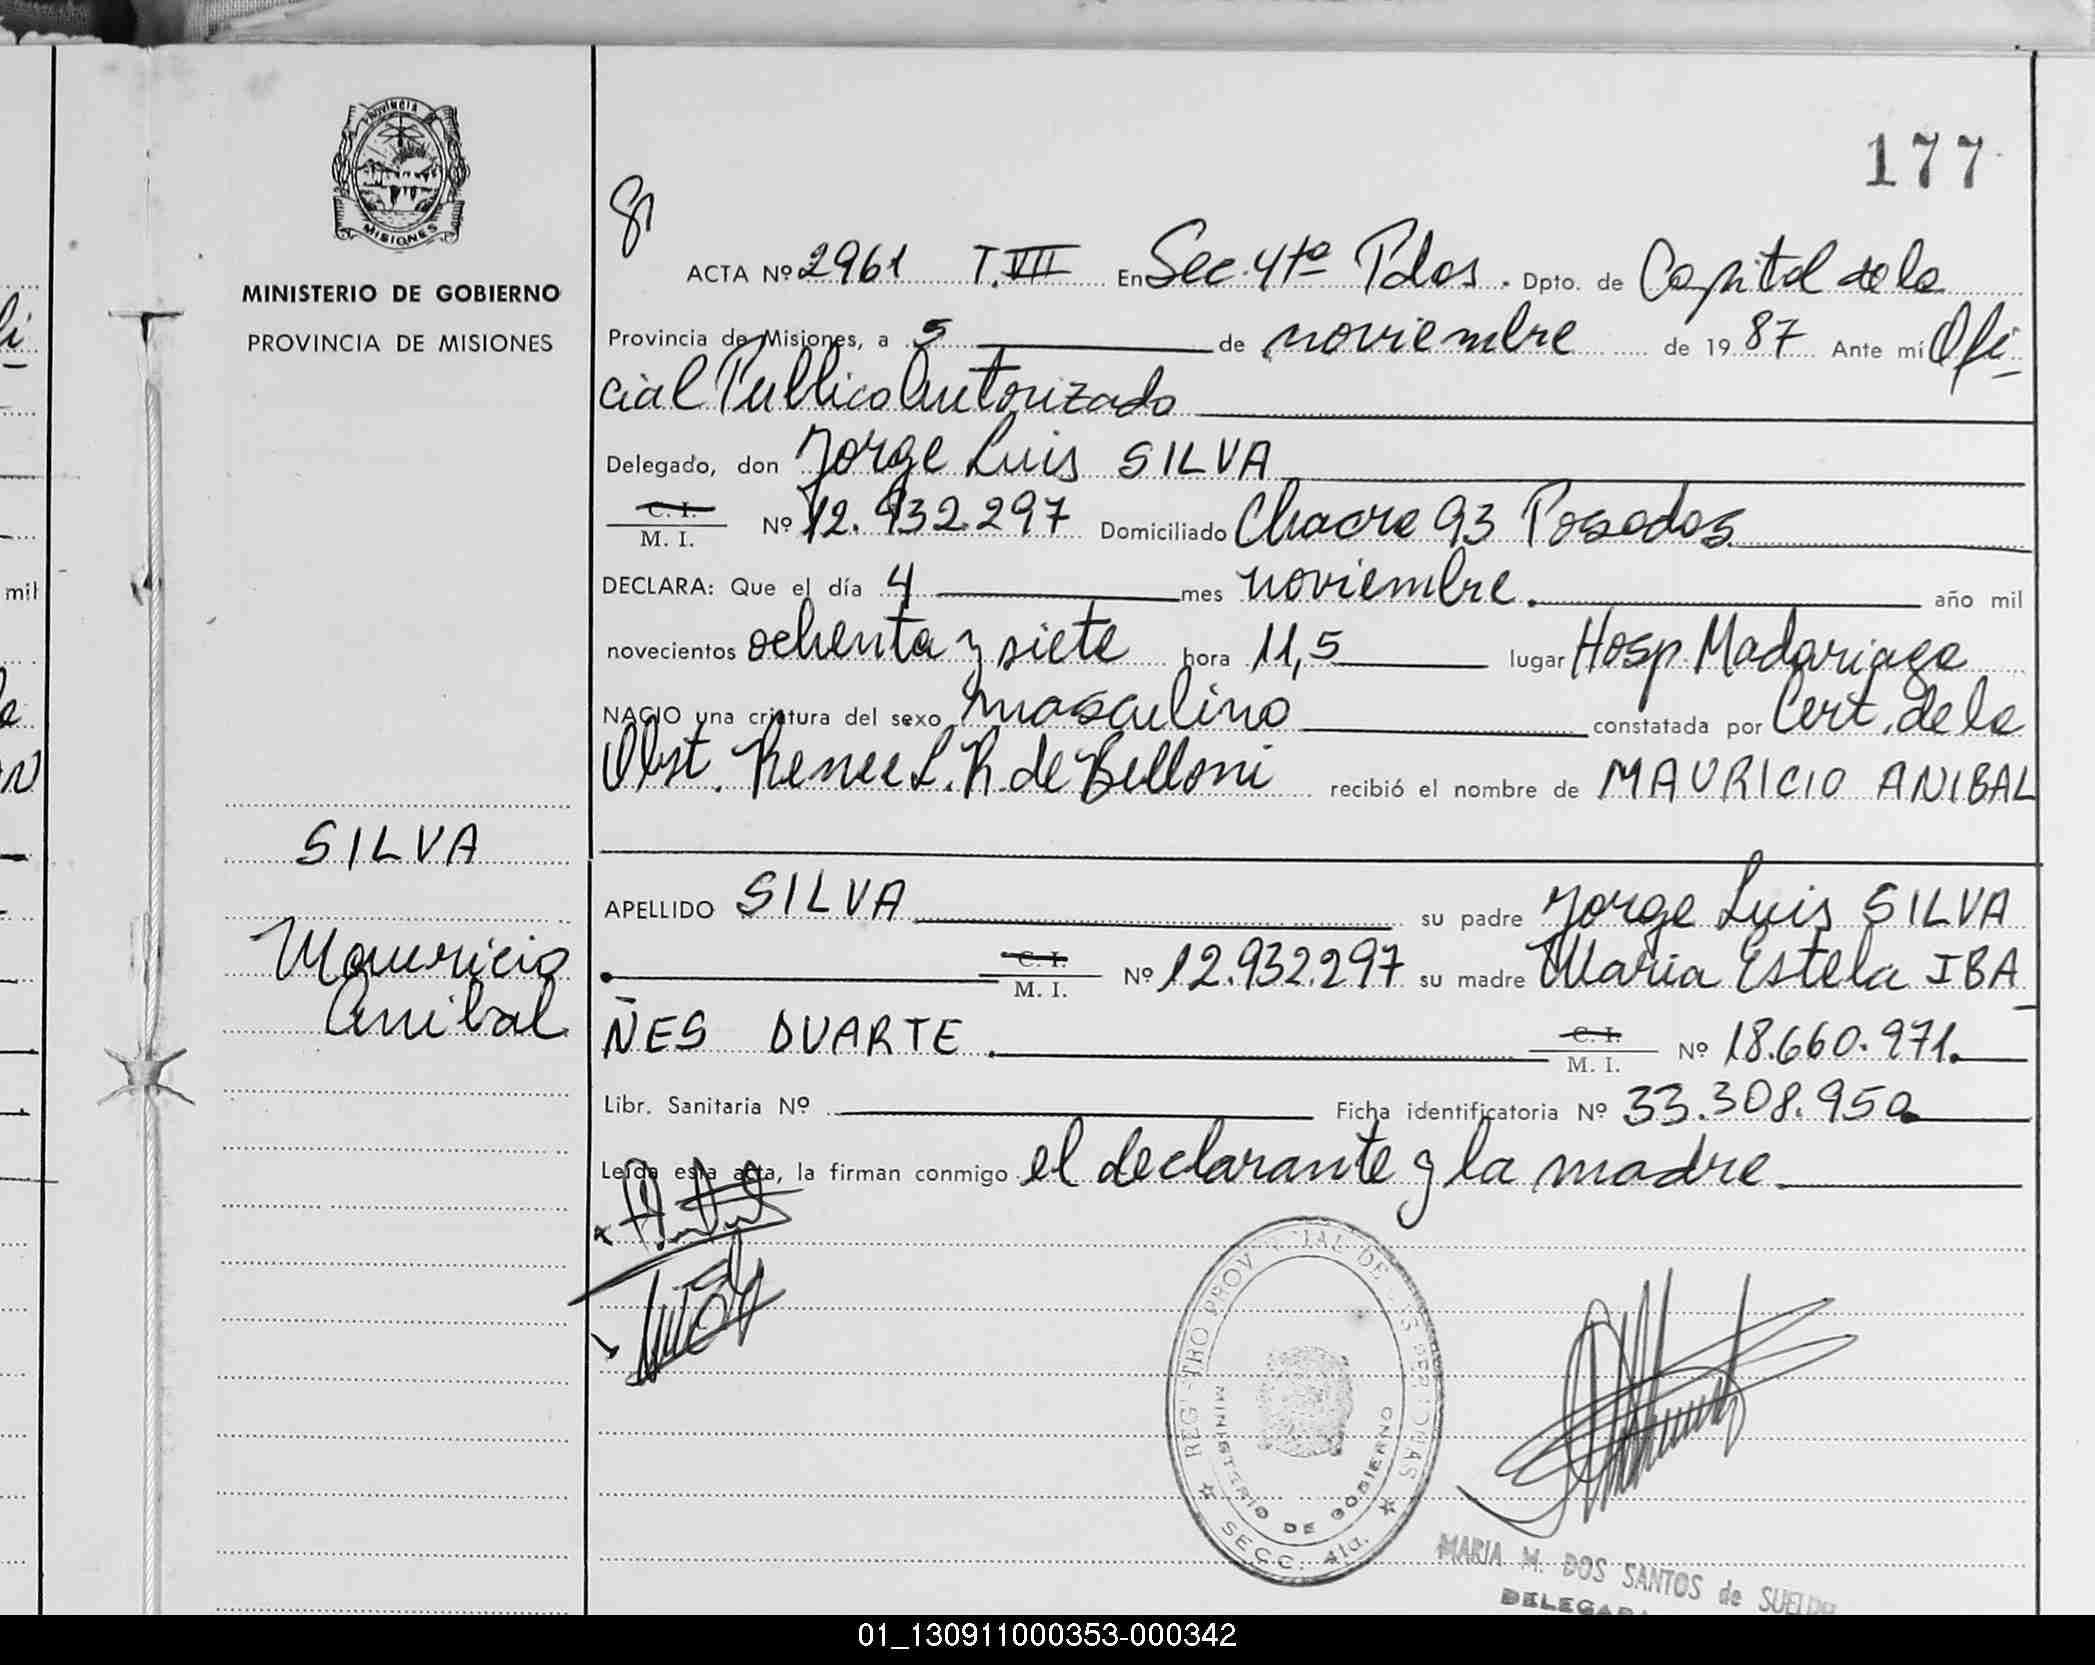 PROVINCIA
MISIONES
MINISTERIO DE GOBIERNO
PROVINCIA DE MISIONES
SILVA
Mauricio
Anibal
177
ACTA Nº 2961 T. VII En Sec. 4tª Pdas. Dpto. de Capital de la
Provincia de Misiones, a 5 de noviembre de 1987 Ante mí Ofi-
cial Publico Autorizado
Delegado, don Jorge Luis SILVA
C. I.
M. I. Nº 12.932.297 Domiciliado Chacra 93 Posadas
DECLARA: Que el día 4 mes noviembre. año mil
novecientos ochenta y siete hora 11,5 lugar Hosp. Madariaga
NACIO una criatura del sexo masculino constatada por Cert. de la
Obst. Renee L. R. de Belloni recibió el nombre de MAURICIO ANIBAL
APELLIDO SILVA su padre Jorge Luis SILVA
C. I.
M. I. Nº 12.932.297 su madre Maria Estela IBA-
ÑES DUARTE. C. I.
M. I. Nº 18.660.971.
Libr. Sanitaria Nº Ficha identificatoria Nº 33.308.950
Leída esta acta, la firman conmigo el declarante y la madre
REGISTRO PROVINCIAL DE LAS PERSONAS
MINISTERIO DE GOBIERNO
SECC. 4ta.
MARIA M. DOS SANTOS de
mil
01_130911000353-000342